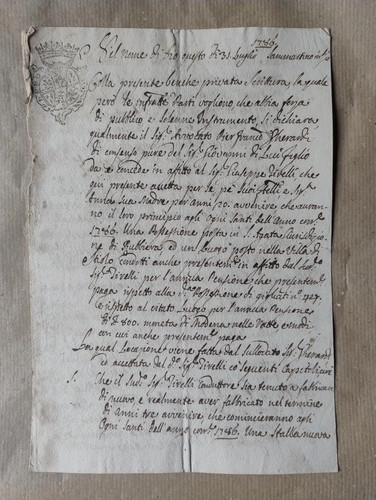 1786
Nel nome di Dio questo dì 31 Luglio Sammartino
Colla presente benche privata Scrittura, la quale
però le infratte Parti vogliono che abbia forza
di pubblico e solenne Instrumento, si dichiara
qualmente il Sig.r Avvocato Pier Franc.o Gherardi
di consenso pure del Sig.r Giovanni di Lui Figlio
Da e concede in affitto al Sig.r Giuseppe Tirelli che
qui presente accetta per se suoi Fratelli e Sig.ra
Sua Madre per anni 20. avvenire che avran-
no il loro principio agli Ogni Santi dell'Anno corr.e
1786. Una Possessione posta in S. Agata Giurisdizio-
ne di Rubbiera ed un Luogo posto nella Villa di
Stiolo condotti anche presentem.te in affitto dal Sud.o
Sig.r Tirelli per l'annua Pensione che presentem.te
paga rispetto alla d.a Possessione di
e rispetto al citato Luogo per l'annua Pensione
di £ 800. moneta di Modena nelle
con cui anche presentem.te paga
La qual Locazione viene fatta dal Sullodato Sig.r Gherardi
ed accettata dal d.o Sig.r Tirelli co' seguenti Capitoli cioè
1. Che il Sud.o Sig.r Tirelli Conduttore sia tenuto a fabbricare
di nuovo, e realmente aver fabbricato nel termine
di anni tre avvenire che comincieranno agli
Ogni Santi dell'anno corr.e 1786. Una Stalla nuova